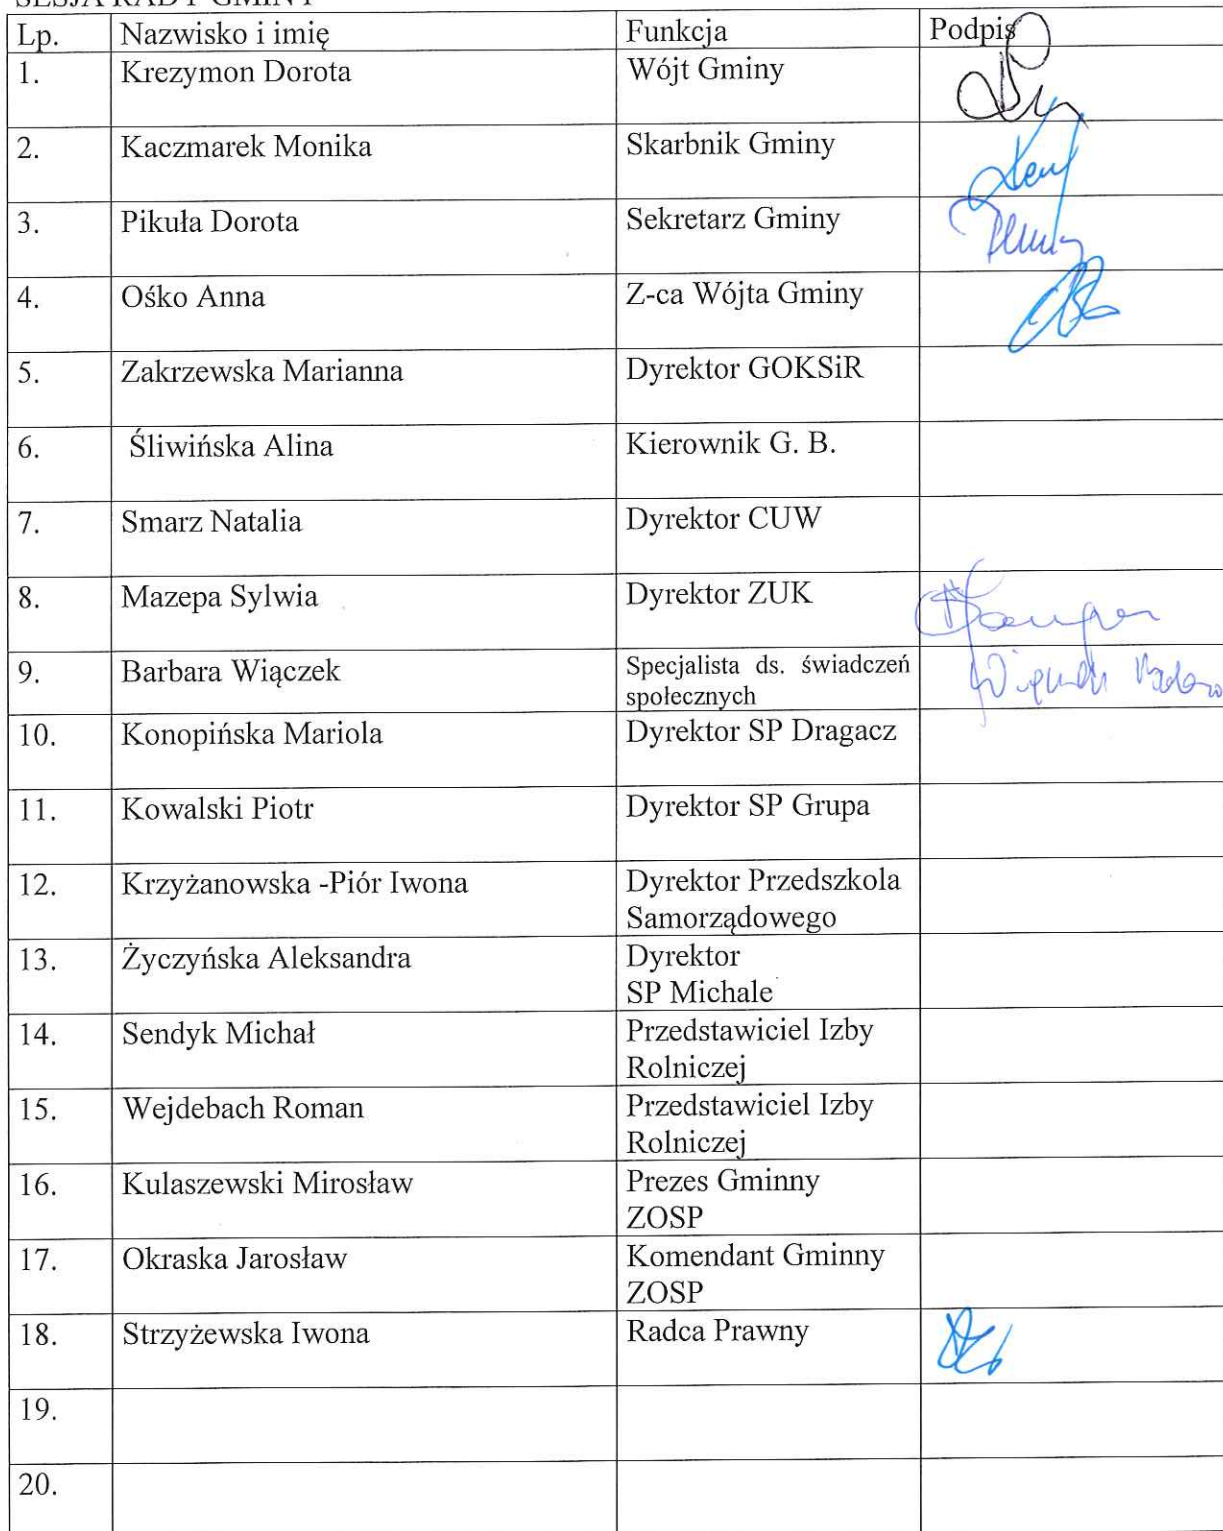 SESJA RADY GMINY
Lp. Nazwisko i imię Funkcja Podpis
1. Krezymon Dorota Wójt Gminy
2. Kaczmarek Monika Skarbnik Gminy
3. Pikuła Dorota Sekretarz Gminy
4. Ośko Anna Z-ca Wójta Gminy
5. Zakrzewska Marianna Dyrektor GOKSiR
6. Śliwińska Alina Kierownik G. B.
7. Smarz Natalia Dyrektor CUW
8. Mazepa Sylwia Dyrektor ZUK
9. Barbara Wiączek Specjalista ds. świadczeń
społecznych
10. Konopińska Mariola Dyrektor SP Dragacz
11. Kowalski Piotr Dyrektor SP Grupa
12. Krzyżanowska -Piór Iwona Dyrektor Przedszkola
Samorządowego
13. Życzyńska Aleksandra Dyrektor
SP Michale
14. Sendyk Michał Przedstawiciel Izby
Rolniczej
15. Wejdebach Roman Przedstawiciel Izby
Rolniczej
16. Kulaszewski Mirosław Prezes Gminny
ZOSP
17. Okraska Jarosław Komendant Gminny
ZOSP
18. Strzyżewska Iwona Radca Prawny
19.
20.